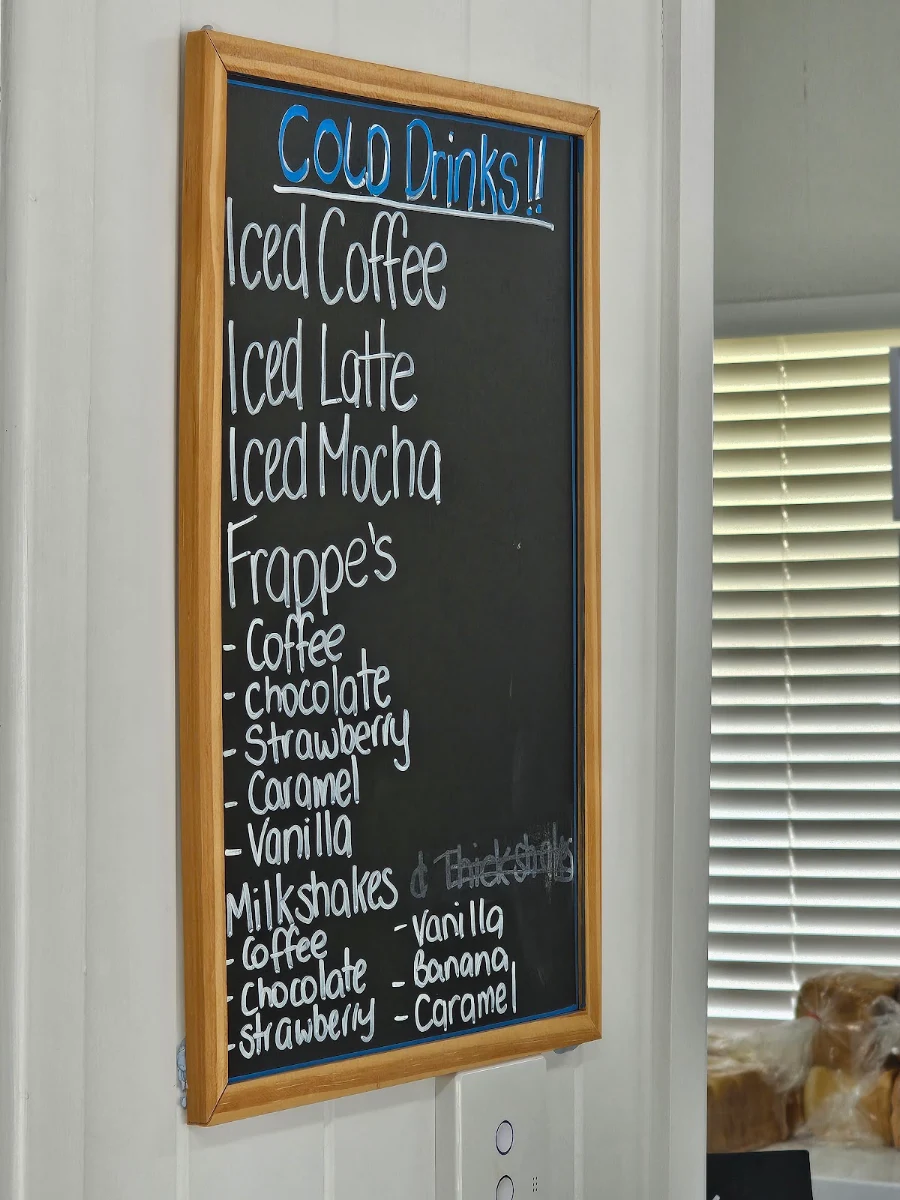 COLD Drinks!!
Iced Coffee
Iced Latte
Iced Mocha
Frappe's
- Coffee
- Chocolate
- Strawberry
- Caramel
- Vanilla
Milkshakes & Thickshakes
- Coffee
- Chocolate
- Strawberry
- Vanilla
- Banana
- Caramel